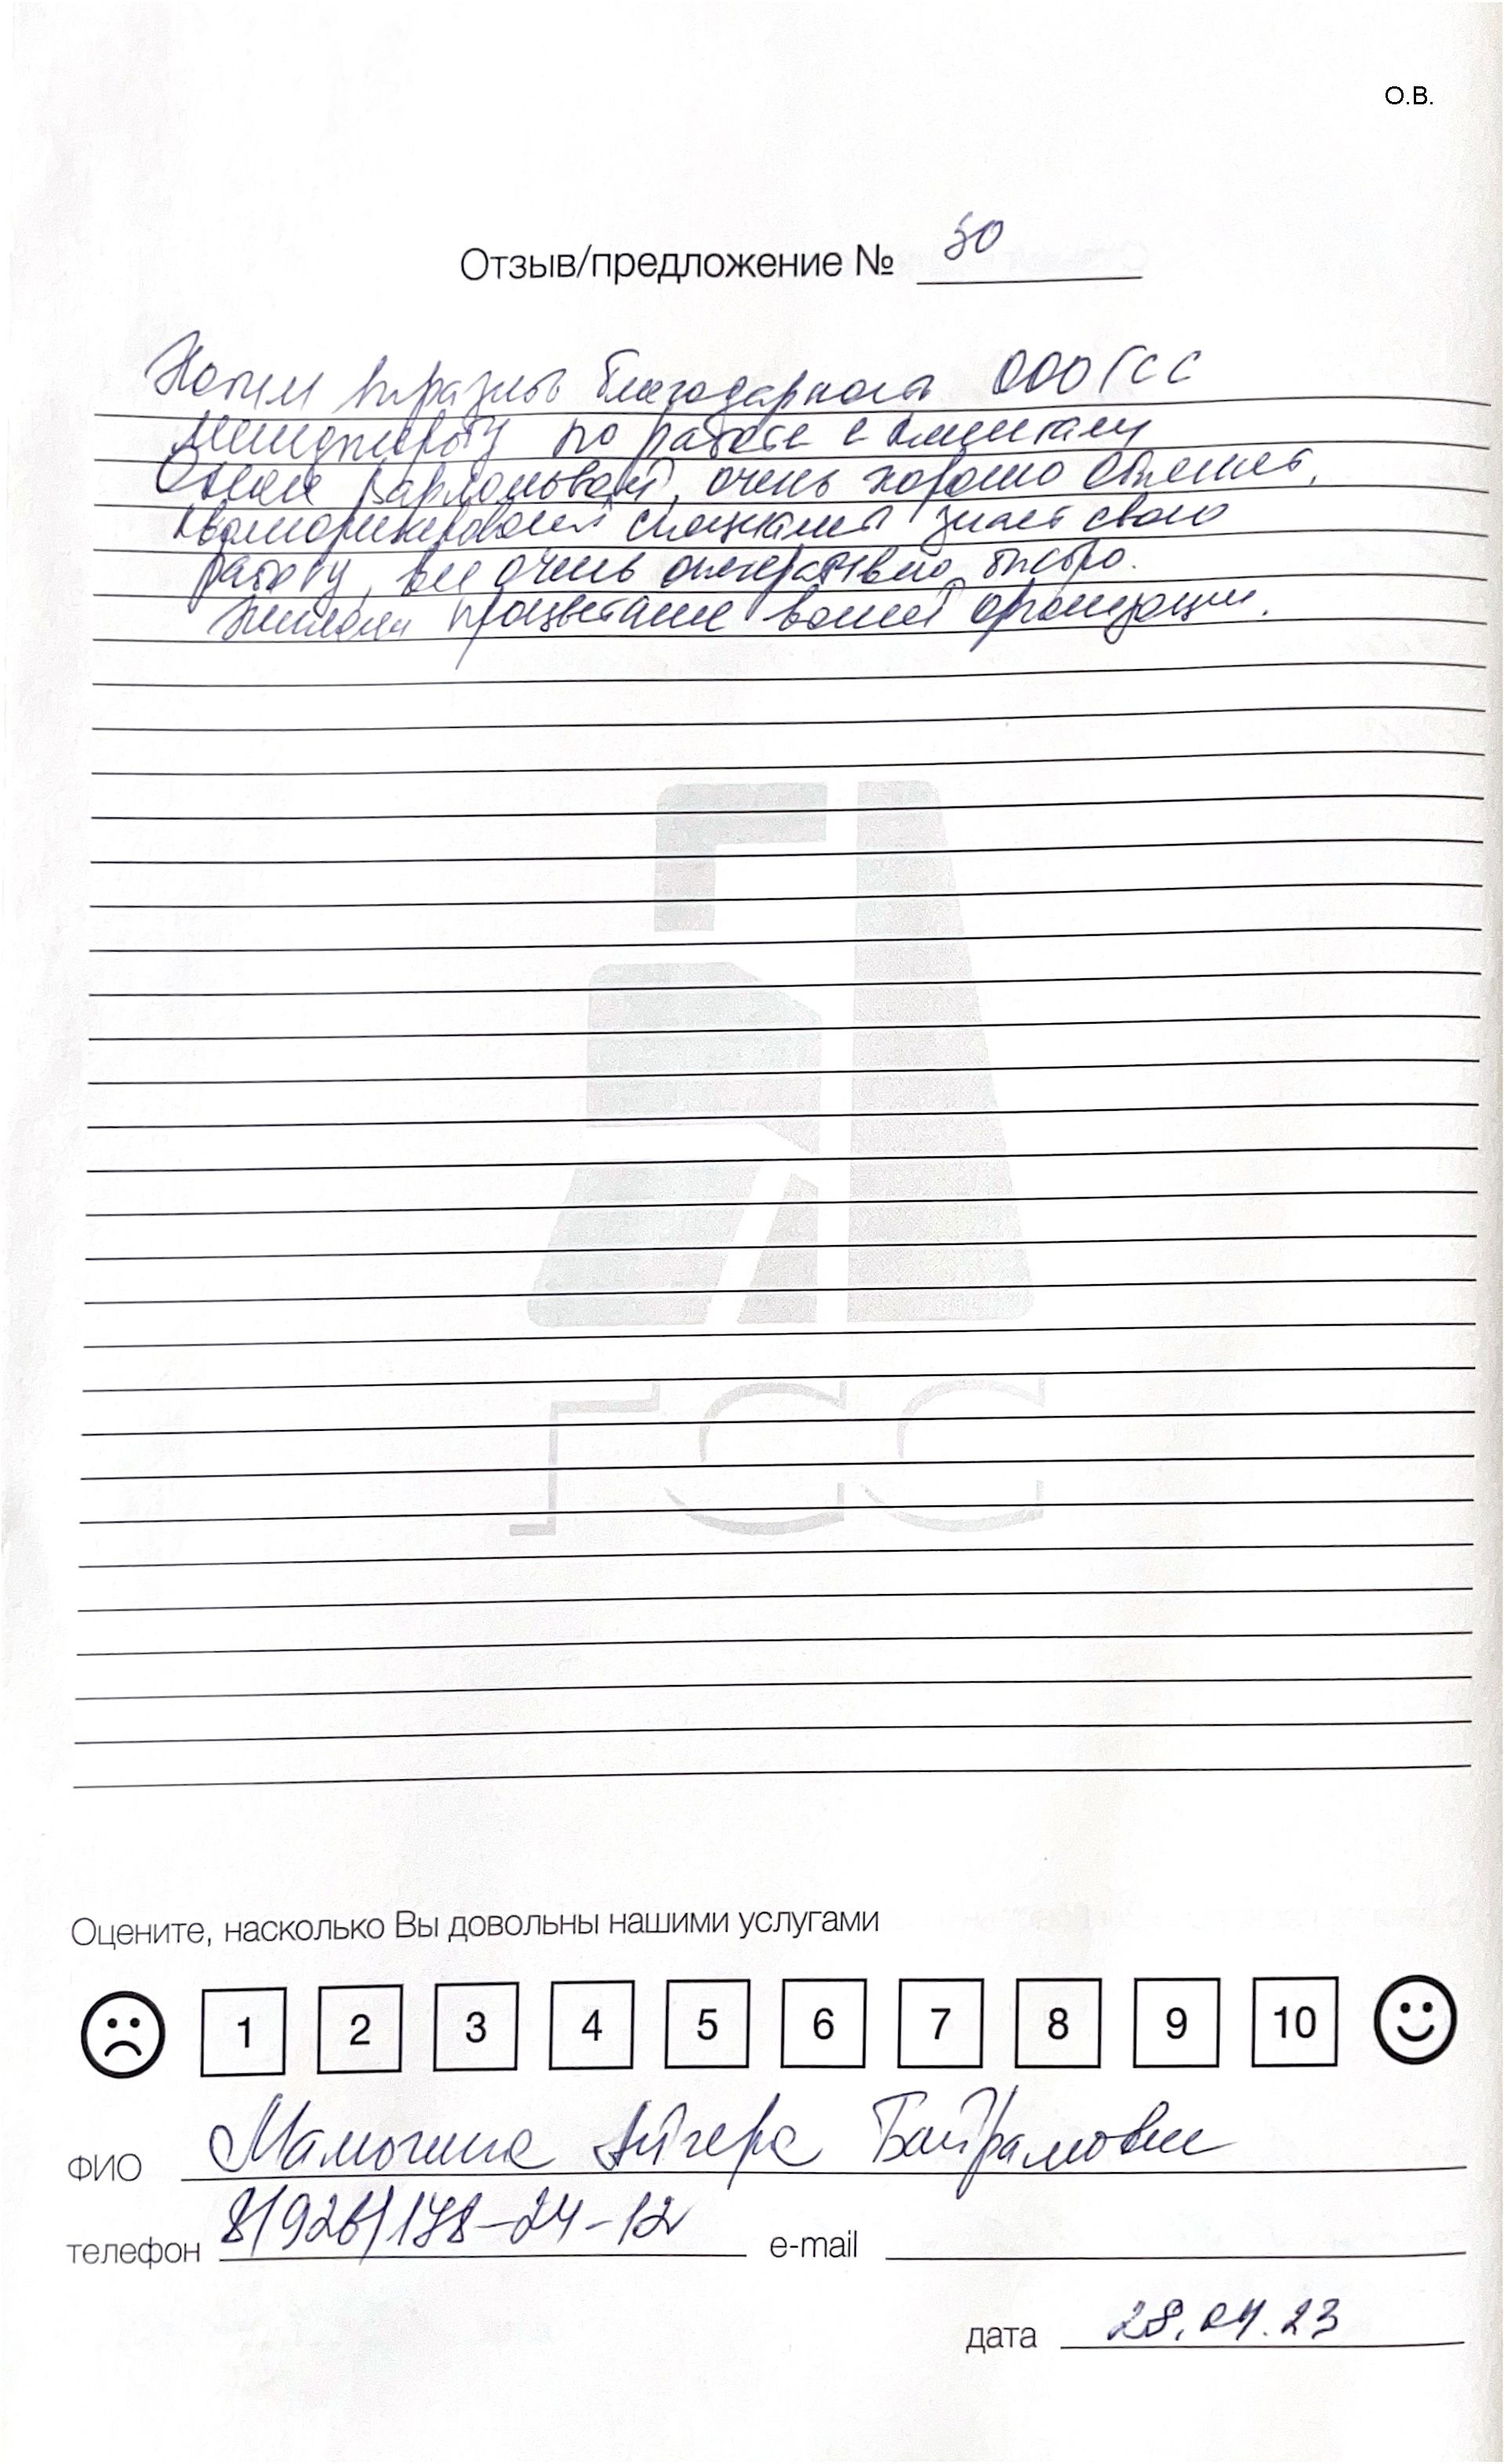 О.В.
Отзыв/предложение № 50
Хотим выразить благодарность ООО ГСС
Менеджеру по работе с клиентами
очень хорошо
специалист знает свою
работу, все очень оперативно, быстро.
Желаем процветание вашей организации.
ГСС
Оцените, насколько Вы довольны нашими услугами
1 2 3 4 5 6 7 8 9 10
ФИО Байрамовна
телефон 8(926)178-24-12 e-mail
дата 28.04.23